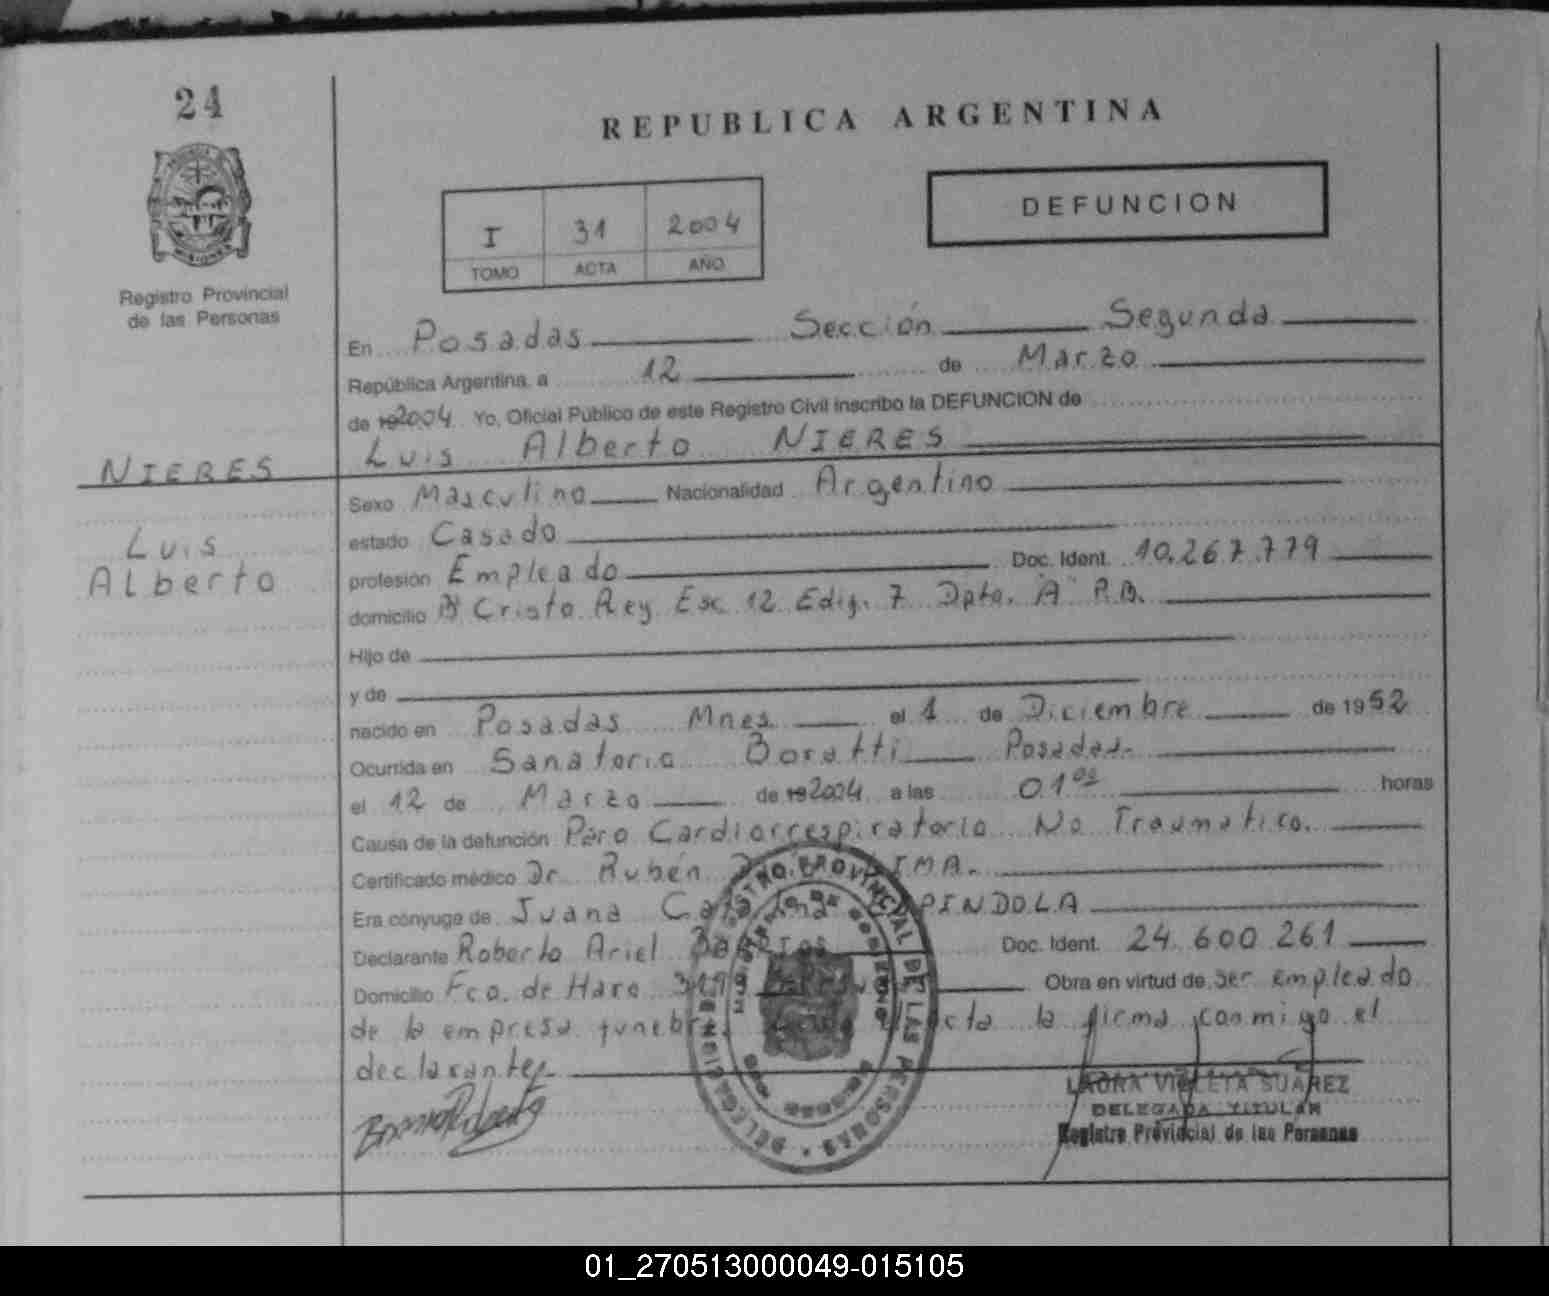 24
REPUBLICA ARGENTINA
DEFUNCION
I 31 2004
TOMO ACTA AÑO
Registro Provincial
de las Personas
En Posadas Sección Segunda
República Argentina, a 12 de Marzo
de 19 2004 Yo, Oficial Público de este Registro Civil inscribo la DEFUNCION de
Luis Alberto NIERES
NIERES
Luis
Alberto
Sexo Masculino Nacionalidad Argentino
estado Casado
profesión Empleado Doc. Ident. 10.267.779
domicilio Bº Cristo Rey Esc 12 Edif. 7 Dpto. "A" P.B.
Hijo de
y de
nacido en Posadas Mnes el 1 de Diciembre de 1952
Ocurrida en Sanatorio Boratti Posadas
el 12 de Marzo de 19 2004 a las 01 00 horas
Causa de la defunción Paro Cardiorrespiratorio No Traumatico.
Certificado médico Dr. Rubén
Era cónyuge de Juana
Declarante Roberto Ariel Doc. Ident. 24.600.261
Domicilio Fco. de Haro Obra en virtud de ser empleado
de la empresa la firma conmigo el
declarante
REGISTRO PROVINCIAL DE LAS PERSONAS
LAURA VIOLETA SUAREZ
DELEGADA TITULAR
Registro Provincial de las Personas
01_270513000049-015105